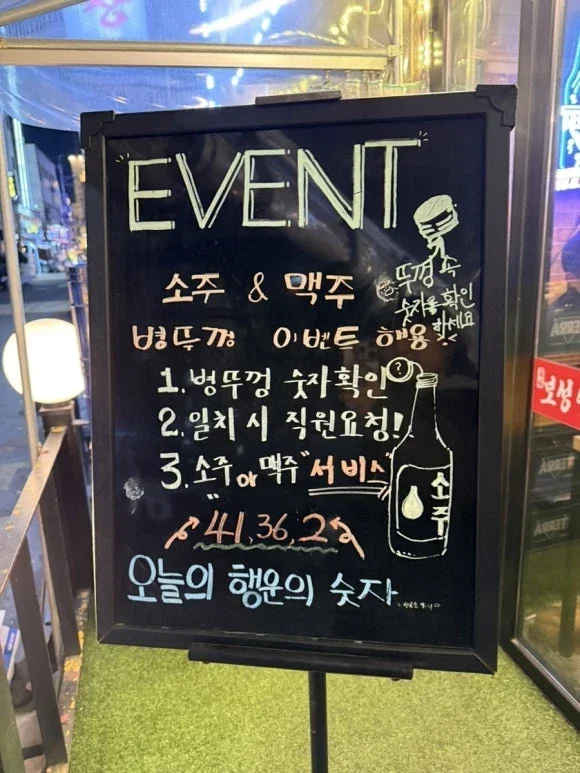 EVENT
소주 & 맥주
뚜껑 속
숫자를 확인
하세요
병뚜껑 이벤트 해용
1. 병뚜껑 숫자확인
?
2. 일치 시 직원요청!
3. "소주 or 맥주" 서비스
소주
41, 36, 2
오늘의 행운의 숫자
보성
TERRA